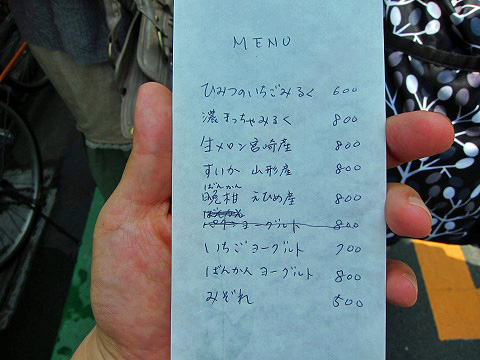 MENU
ひみつのいちごみるく 600
濃まっちゃみるく 800
生メロン宮崎産 800
すいか 山形産 800
ばんかん
晩柑 えひめ産 800
パイン ヨーグルト 800
いちごヨーグルト 700
ばんかん ヨーグルト 800
みぞれ 500